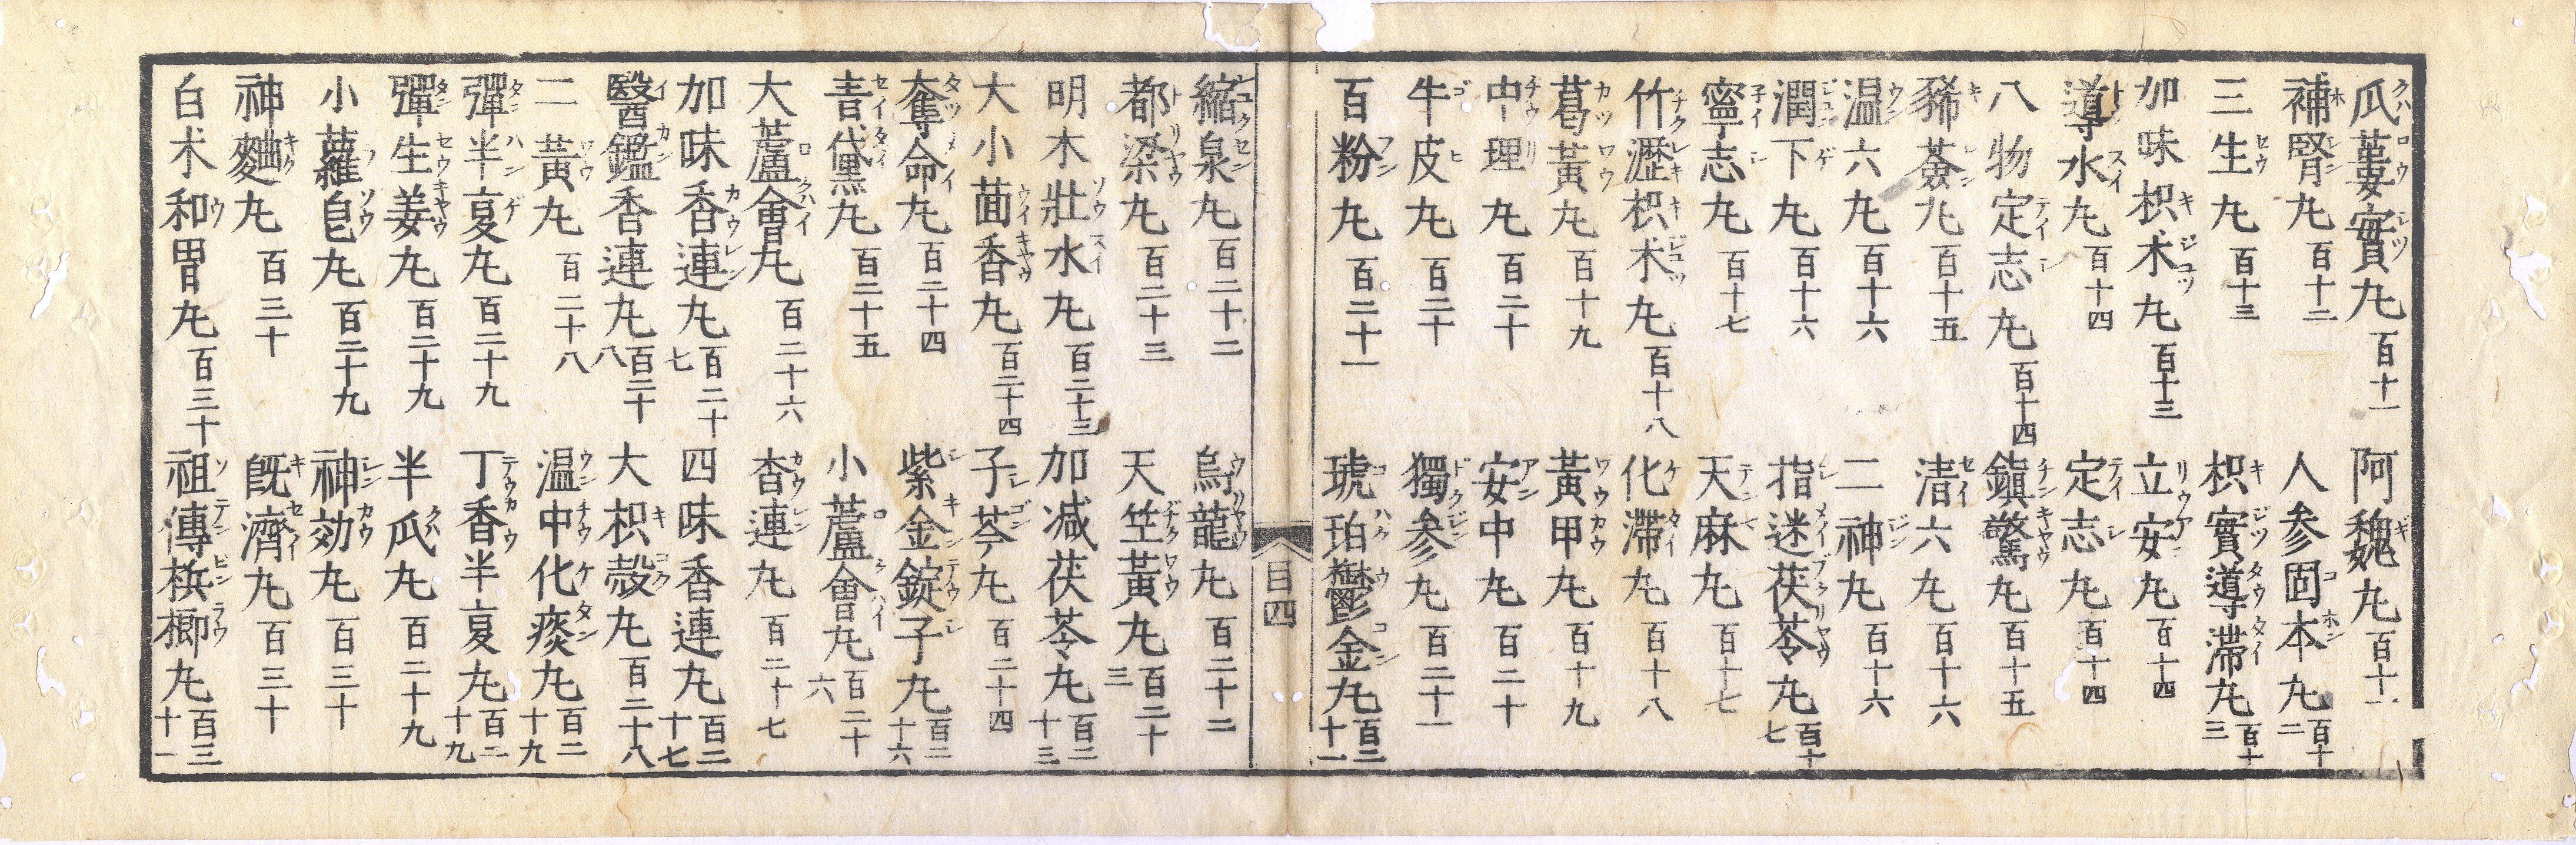 瓜蔞實丸 百十一 阿魏丸 百十一
補腎丸 百十二 人参固本丸 百十二
三生丸 百十三 枳實導滞丸 百十三
加味枳朮丸 百十三 立安丸 百十四
導水丸 百十四 定志丸 百十四
八物定志丸 百十四 鎭驚丸 百十五
豨薟丸 百十五 清六丸 百十六
温六丸 百十六 二神丸 百十六
潤下丸 百十六 指迷茯苓丸 百十七
寧志丸 百十七 天麻丸 百十七
竹瀝枳朮丸 百十八 化滯丸 百十八
葛黄丸 百十九 黃甲丸 百十九
中理丸 百二十 安中丸 百二十
牛皮丸 百二十 獨参丸 百二十一
百粉丸 百二十一 琥珀鬱金丸 百二十一
目四
縮泉丸 百二十二 烏龍丸 百二十二
都梁丸 百二十三 天竺黃丸 百二十三
明木壯水丸 百二十三 加减茯苓丸 百二十三
大小茴香丸 百二十四 子芩丸 百二十四
奪命丸 百二十四 紫金錠子丸 百二十六
青黛丸 百二十五 小蘆會丸 百二十六
大蘆會丸 百二十六 杳連丸 百二十七
加味香連丸 百二十七 四味香連丸 百二十七
醫鑑香連丸 百二十八 大枳殻丸 百二十八
二黃丸 百二十八 温中化痰丸 百二十九
彈半夏丸 百二十九 丁香半夏丸 百二十九
彈生姜丸 百二十九 半瓜丸 百二十九
小蘿皀丸 百二十九 神効丸 百三十
神麯丸 百三十 旣濟丸 百三十
白朮和胃丸 百三十 祖傳梹榔丸 百三十一